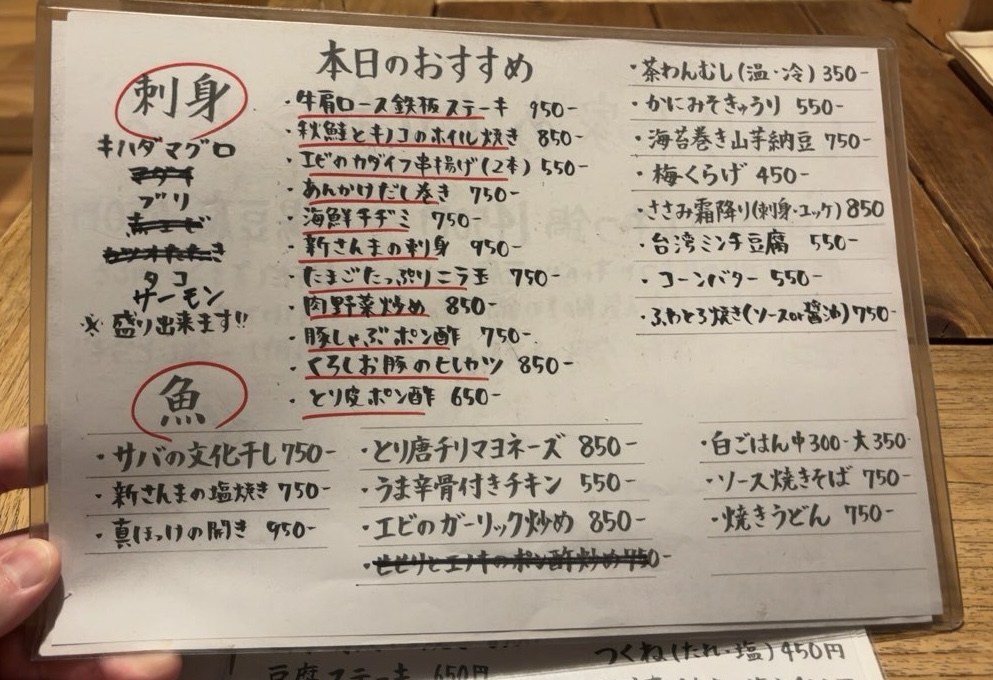 刺身
キハダマグロ
ブリ
タコ
サーモン
※盛り出来ます!!
魚
・サバの文化干し 750-
・新さんまの塩焼き 750-
・真ほっけの開き 950-
本日のおすすめ
・牛肩ロース鉄板ステーキ 950-
・秋鮭とキノコのホイル焼き 850-
・エビのカダイフ串揚げ(2本) 550-
・あんかけだし巻き 750-
・海鮮チヂミ 750-
・新さんまの刺身 950-
・たまごたっぷりニラ玉 750-
・肉野菜炒め 850-
・豚しゃぶポン酢 750-
・くろしお豚のヒレカツ 850-
・とり皮ポン酢 650-
・とり唐チリマヨネーズ 850-
・うま辛骨付きチキン 550-
・エビのガーリック炒め 850-
・茶わんむし(温・冷) 350-
・かにみそきゅうり 550-
・海苔巻き山芋納豆 750-
・梅くらげ 450-
・ささみ霜降り(刺身・ユッケ) 850
・台湾ミンチ豆腐 550-
・コーンバター 550-
・ふわとろ焼き(ソースor醤油) 750-
・白ごはん 中300-大350-
・ソース焼きそば 750-
・焼きうどん 750-
豆腐ステーキ 650円
つくね(たれ・塩) 450円